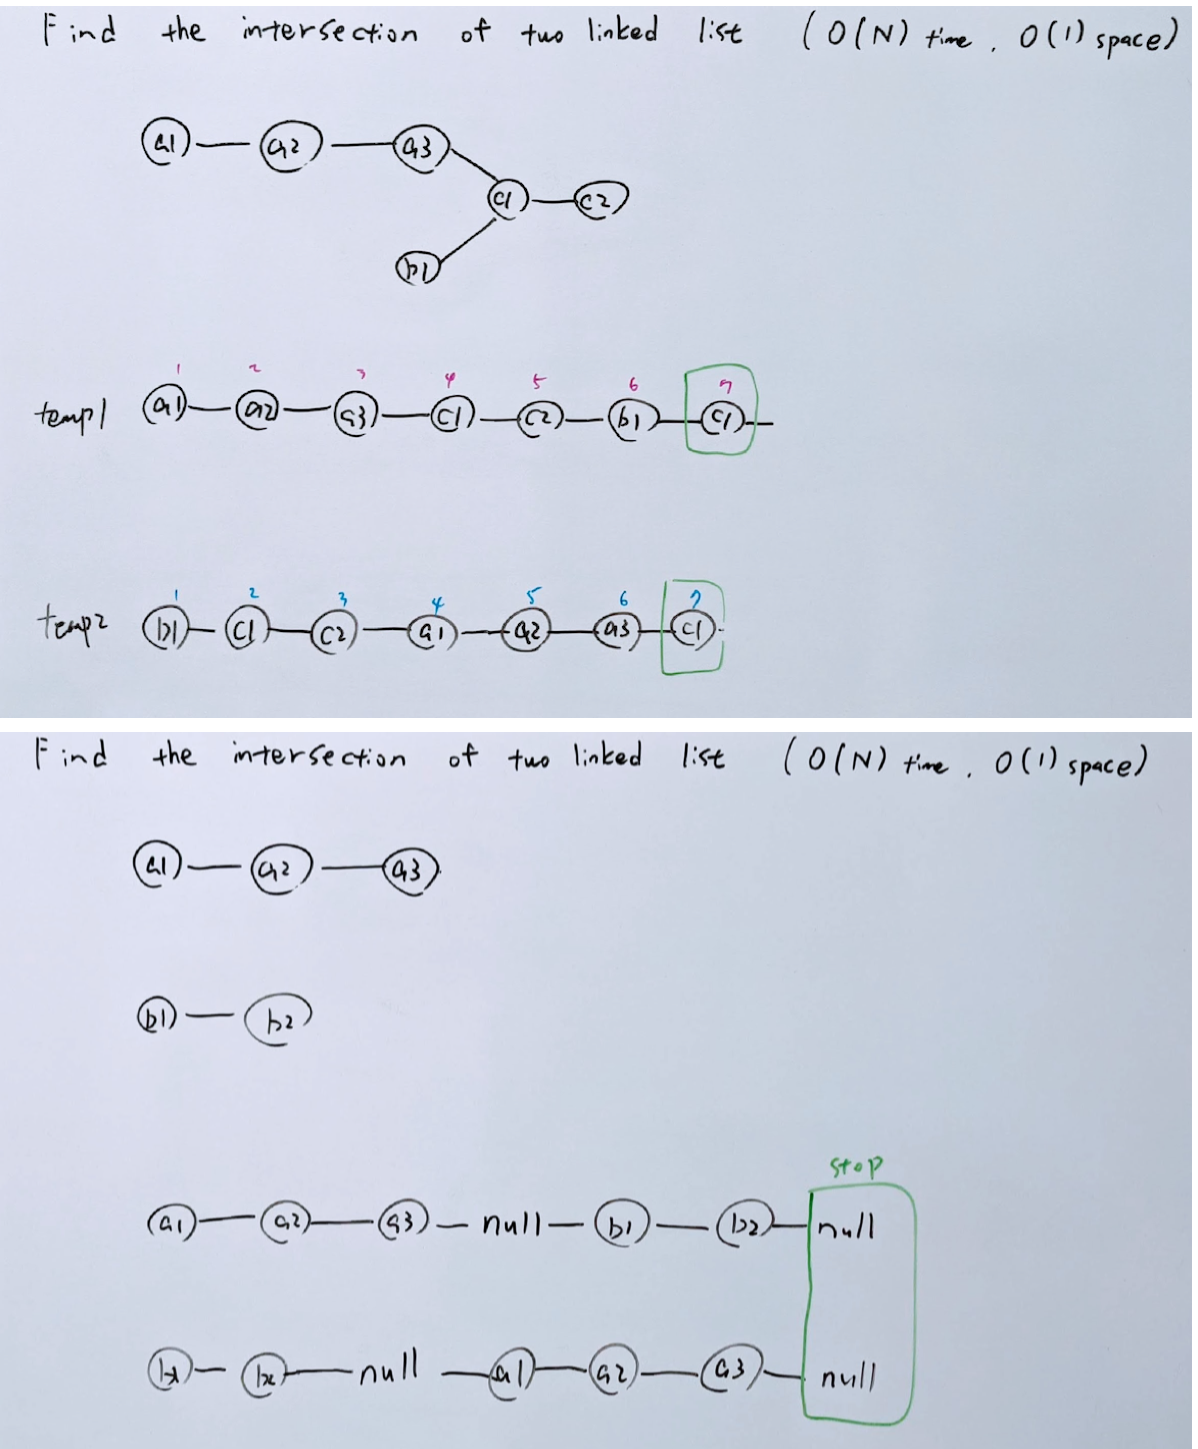 Find the intersection of two linked list (O(N) time, O(1) space)
a1 a2 a3
c1 c2
b1
1 2 3 4 5 6 7
temp1 a1 a2 a3 c1 c2 b1 c1
1 2 3 4 5 6 7
temp2 b1 c1 c2 a1 a2 a3 c1
Find the intersection of two linked list (O(N) time, O(1) space)
a1 a2 a3
b1 b2
stop
a1 a2 a3 null b1 b2 null
null a1 a2 a3 null